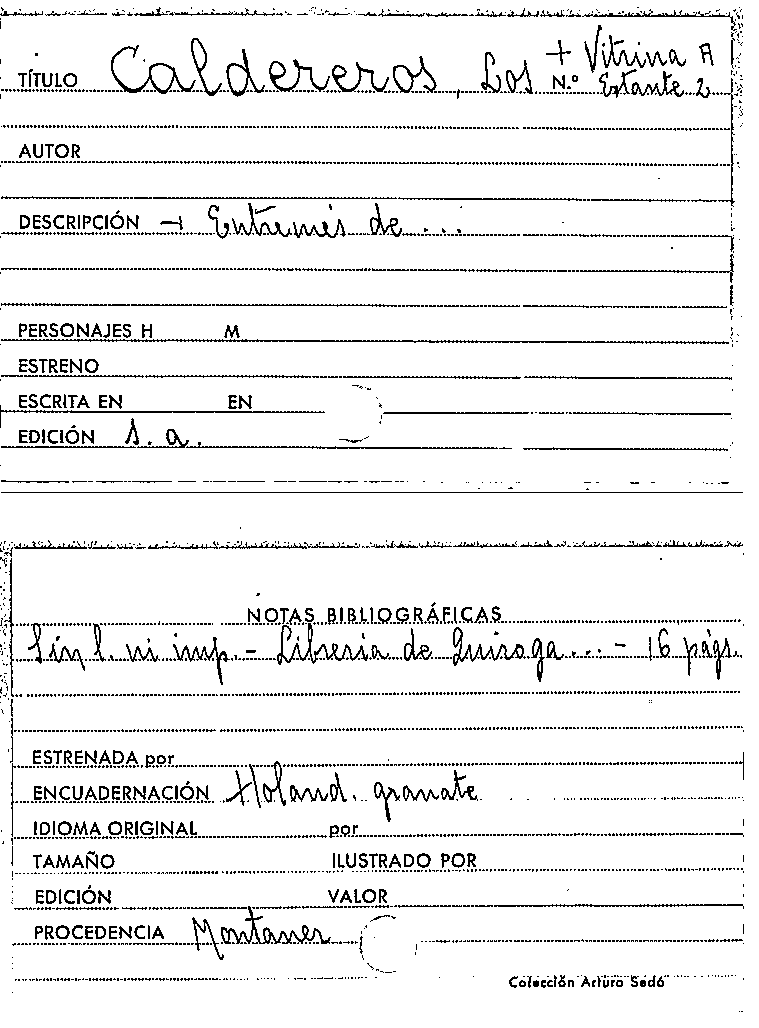 + Vitrina A
TÍTULO Caldereros, Los N.º Estante 2
AUTOR
DESCRIPCIÓN → Entremés de ...
PERSONAJES H M
ESTRENO
ESCRITA EN EN
EDICIÓN s. a.
NOTAS BIBLIOGRÁFICAS
Sin l. ni imp. - Libreria de Quiroga ... - 16 págs.
ESTRENADA por
ENCUADERNACIÓN Holand. granate
IDIOMA ORIGINAL por
TAMAÑO ILUSTRADO POR
EDICIÓN VALOR
PROCEDENCIA Montaner
Colección Arturo Sedó